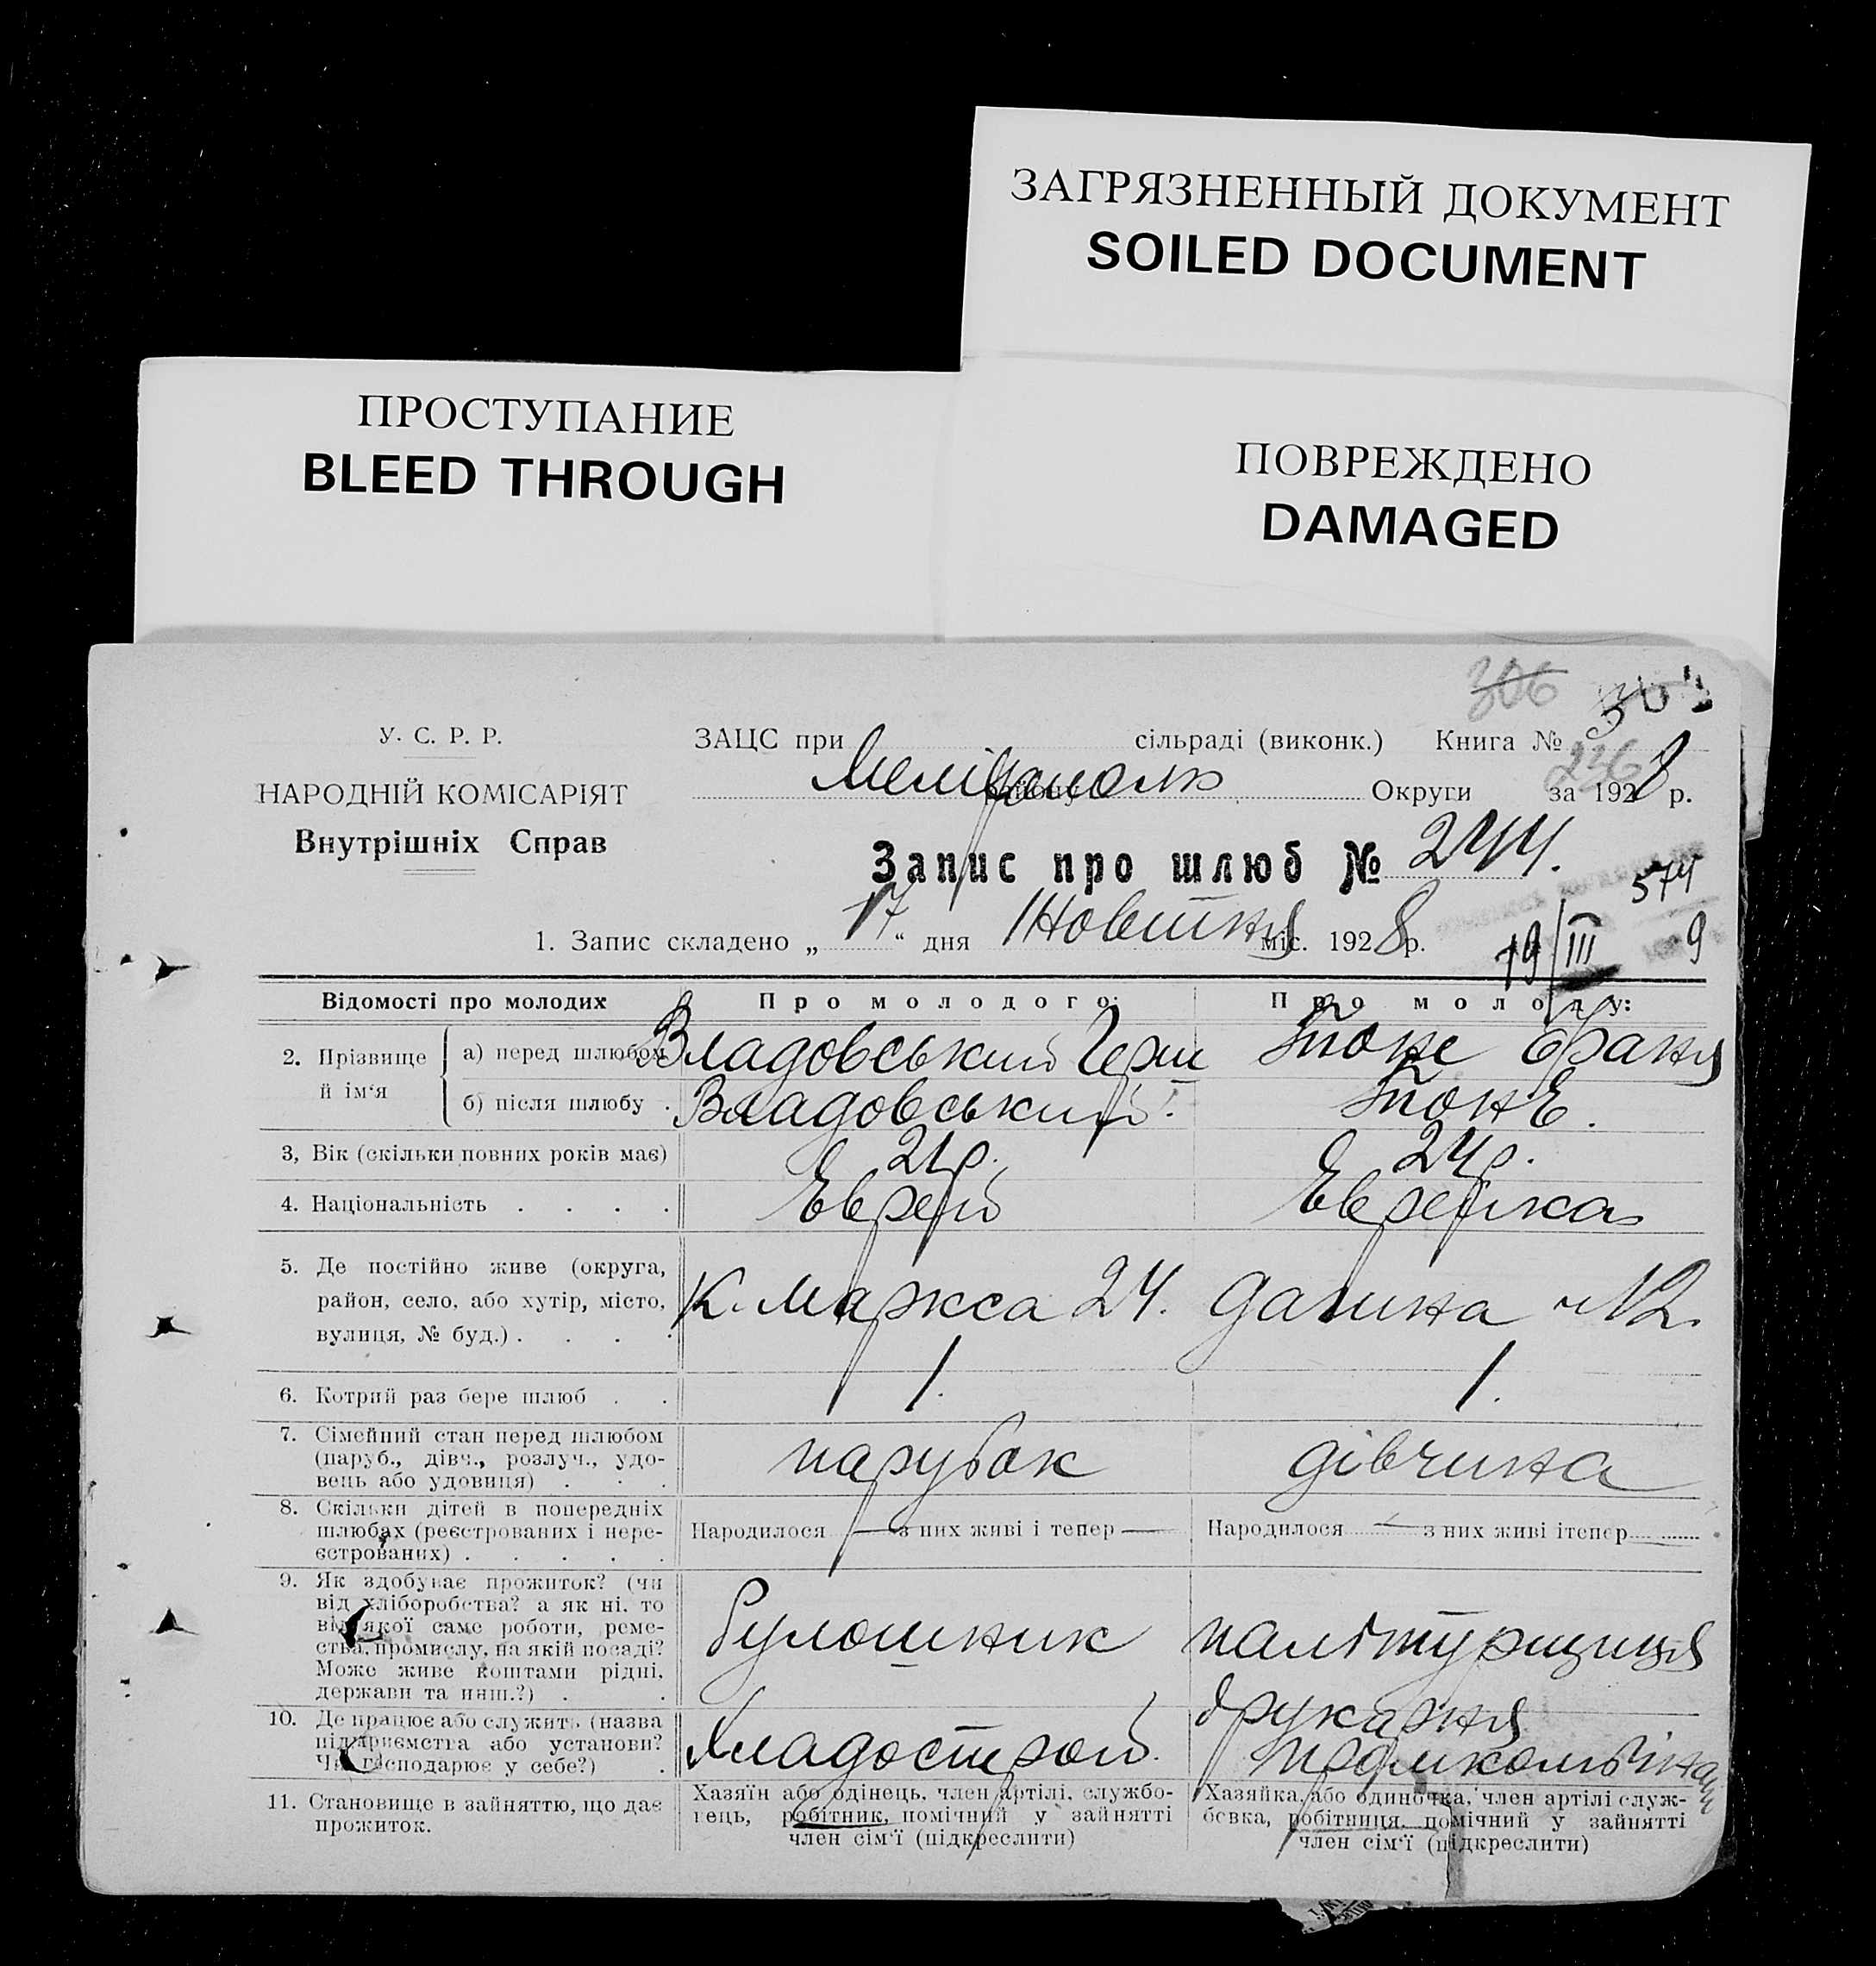 ЗАГРЯЗНЕННЫЙ ДОКУМЕНТ
SOILED DOCUMENT
ПРОСТУПАНИЕ
BLEED THROUGH
ПОВРЕЖДЕНО
DAMAGED
306
У. С. Р. Р.
НАРОДНІЙ КОМІСАРІЯТ
Внутрішніх Справ
ЗАЦС при сільраді (виконк.) Книга №
246
Округи за 1928 р.
Запис про шлюб № 244.
574
1. Запис складено „ 17 “ дня міс. 1928 р.
19/III 9
Відомості про молодих Про молодого: Про молоду:
2. Прізвище й ім‘я
а) перед шлюбом Владовський Герш Браня
б) після шлюбу . Владовський.
3, Вік (скільки повних років має) 21 р. 24 р.
4. Національність . . . . Еврей Еврейка
5. Де постійно живе (округа,
район, село, або хутір, місто,
вулиця, № буд.) . . . . К. Маркса 24.
6. Котрий раз бере шлюб . . 1. 1.
7. Сімейний стан перед шлюбом
(паруб., дівч., розлуч., удо-
вець або удовиця) . . . парубок дівчина
8. Скільки дітей в попередніх
шлюбах (реєстрованих і нере-
єстрованих) . . . . .
Народилося — з них живі і тепер — Народилося — з них живі ітепер
9. Як здобуває прожиток? (чи
від хліборобства? а як ні, то
від якої саме роботи, реме-
ства, промислу, на якій посаді?
Може живе коштами рідні,
держави та инш.?) . .
Булошник
10. Де працює або служить (назва
підприємства або установи?
Чи господарює у себе?) .
друкарня
11. Становище в зайняттю, що дає
прожиток.
Хазяїн або одінець, член артілі, службо-
вець, робітник, помічний у зайнятті
член сім‘ї (підкреслити)
Хазяйка, або одиночка, член артілі служ-
бовка, робітниця, помічний у зайнятті
член сім‘ї (підкреслити)